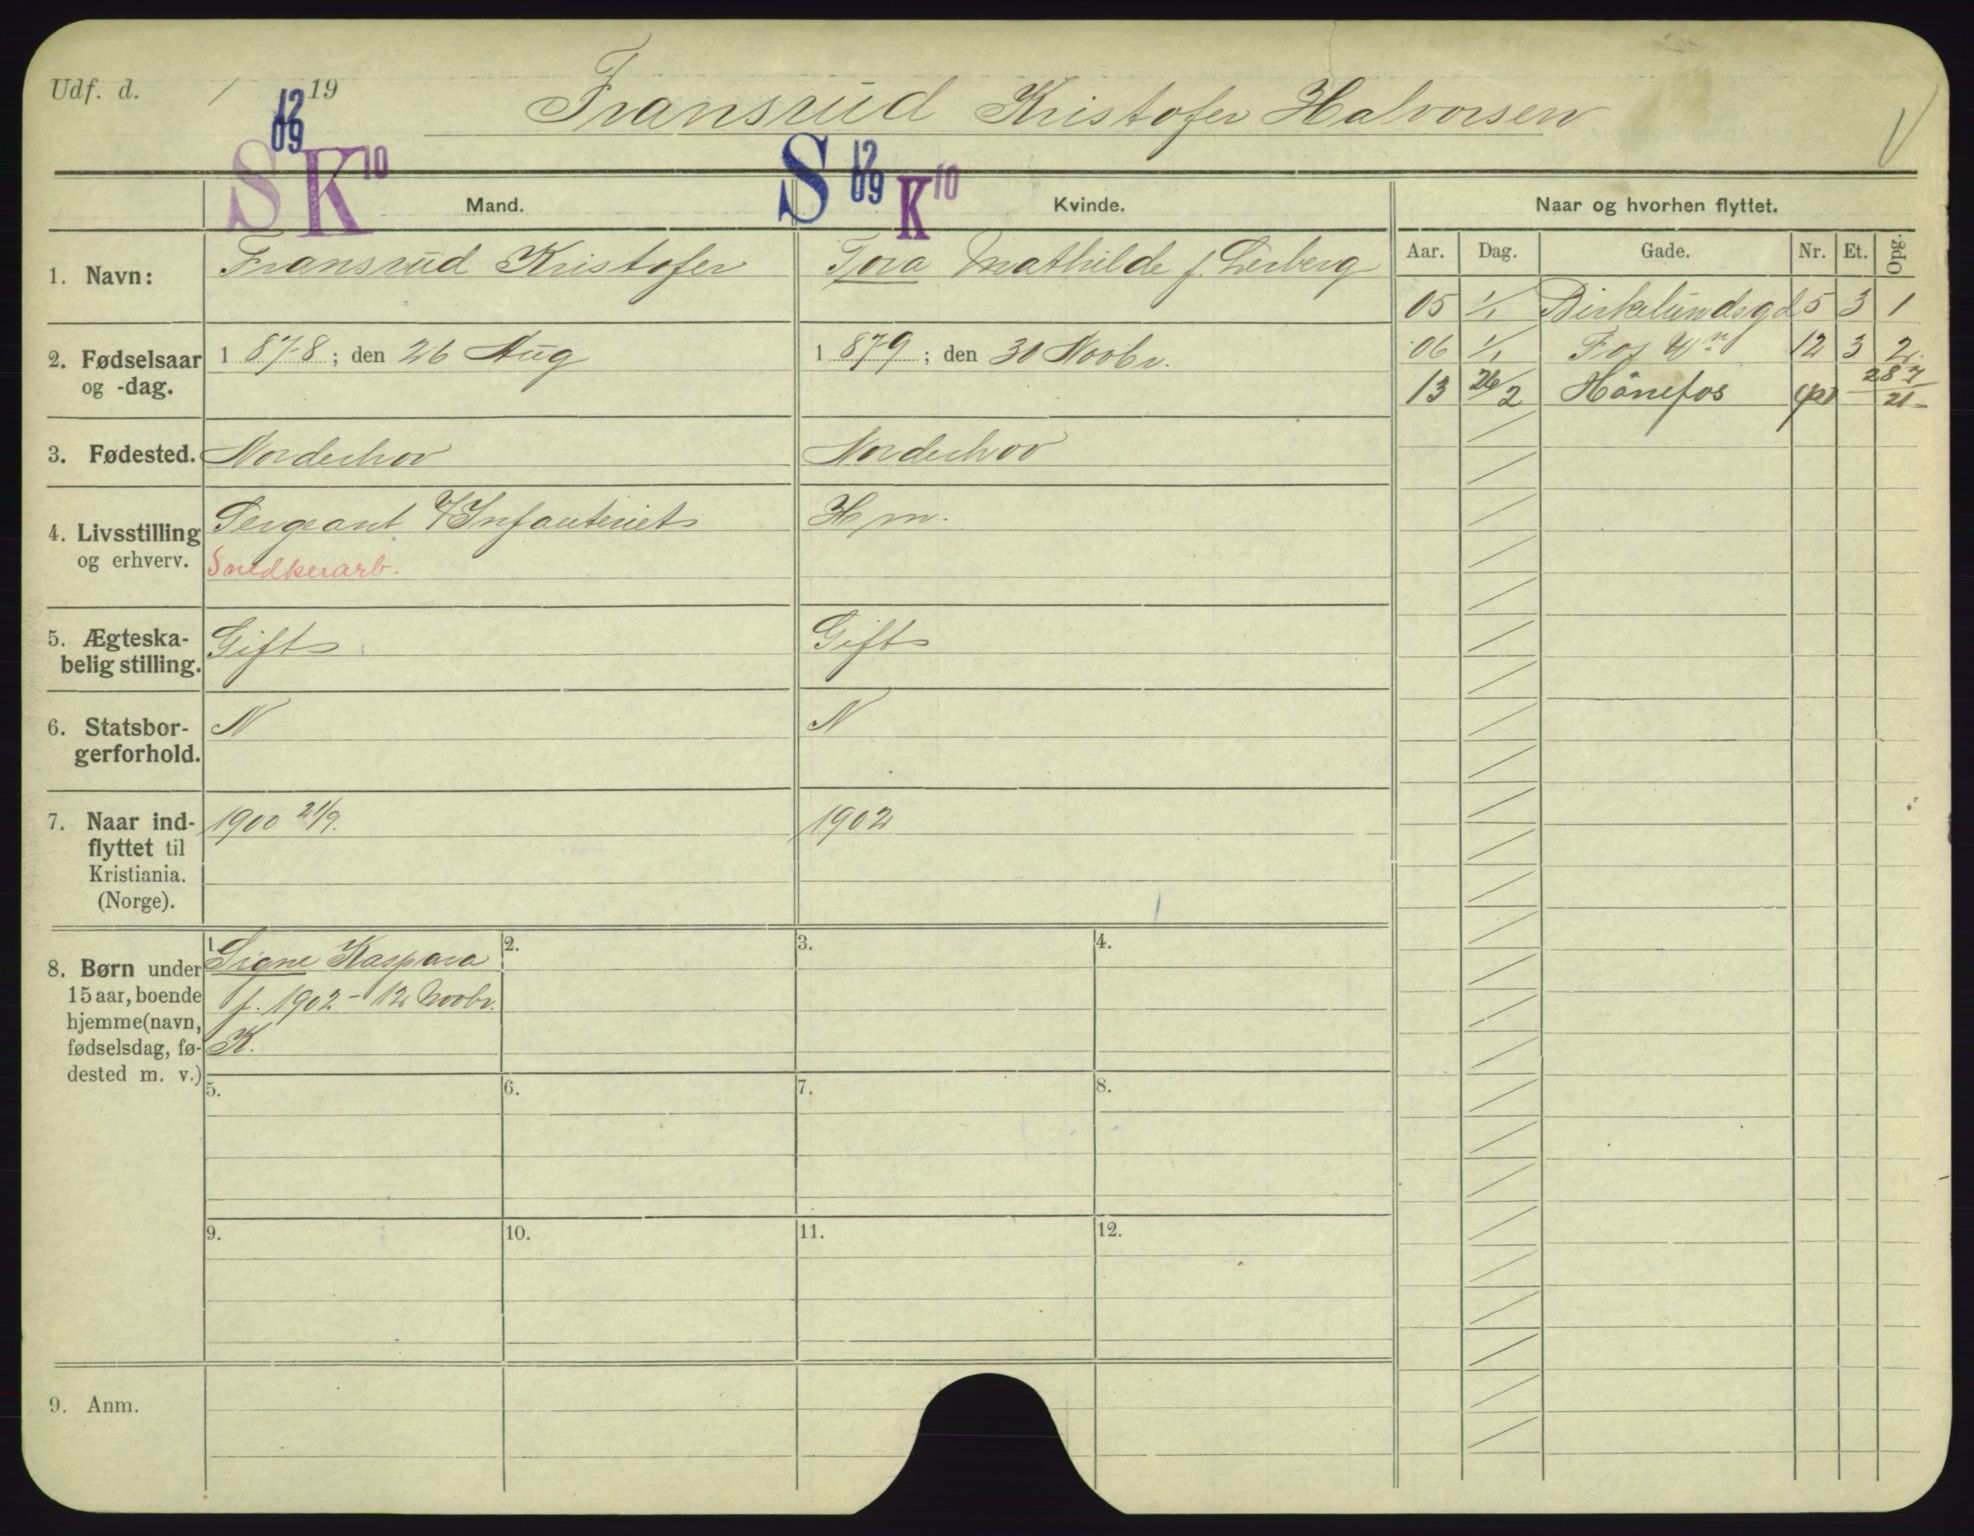 Udf. d. / 19
Fransrud Kristofer Halvorsen
12
09
S K 10
S 12
09
K 10
Mand.
Kvinde.
Naar og hvorhen flyttet.
Aar. Dag. Gade. Nr. Et. Opg.
1. Navn:
Fransrud Kristofer
Tora Mathilde f. Lerberg
05 1/1 Birkelundsgd 5 3 1
06 1/1 12 3 2
13 26/2 Hönefos 28 7
21
2. Fødselsaar
og -dag.
1 878; den 26 Aug
1 879; den 30 Novbr.
3. Fødested.
Norderhov
Norderhov
4. Livsstilling
og erhverv.
Sergeant v/Infanteriet
Snedkerarb.
H m.
5. Ægteska-
belig stilling.
Gift
Gift
6. Statsbor-
gerforhold.
N
N
7. Naar ind-
flyttet til
Kristiania.
(Norge).
1900 21/9.
1902
8. Børn under
15 aar, boende
hjemme (navn,
fødselsdag, fø-
dested m. v.)
1. Signe Kaspara
f. 1902 - 12 Novbr.
K.
2.
3.
4.
5.
6.
7.
8.
9.
10.
11.
12.
9. Anm.